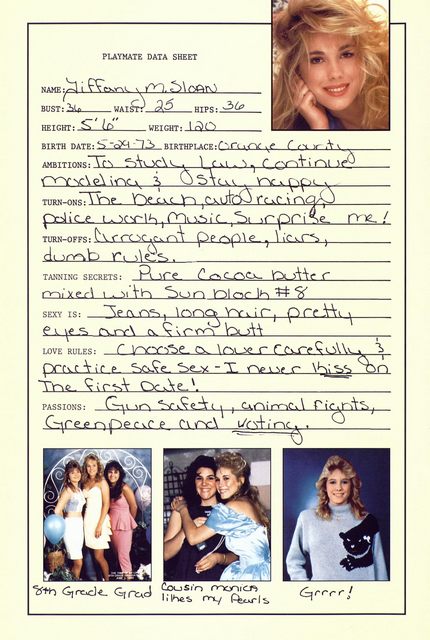 PLAYMATE DATA SHEET
NAME: Tiffany M. Sloan
BUST: 36 WAIST: 25 HIPS: 36
HEIGHT: 5'6" WEIGHT: 120
BIRTH DATE: 5-24-73 BIRTHPLACE: Orange County
AMBITIONS: To study Law, continue
modeling & stay happy
TURN-ONS: The beach, auto racing,
police work, Music, Surprise me!
TURN-OFFS: Arrogant people, liars,
dumb rules.
TANNING SECRETS: Pure Cocoa butter
mixed with Sun block #8
SEXY IS: Jeans, long hair, pretty
eyes and a firm butt
LOVE RULES: Choose a lover carefully &
practice safe sex - I never kiss on
The first Date!
PASSIONS: Gun safety, animal rights,
Greenpeace and voting.
8th Grade Grad
Cousin monica
likes my Pearls
Grrrr!